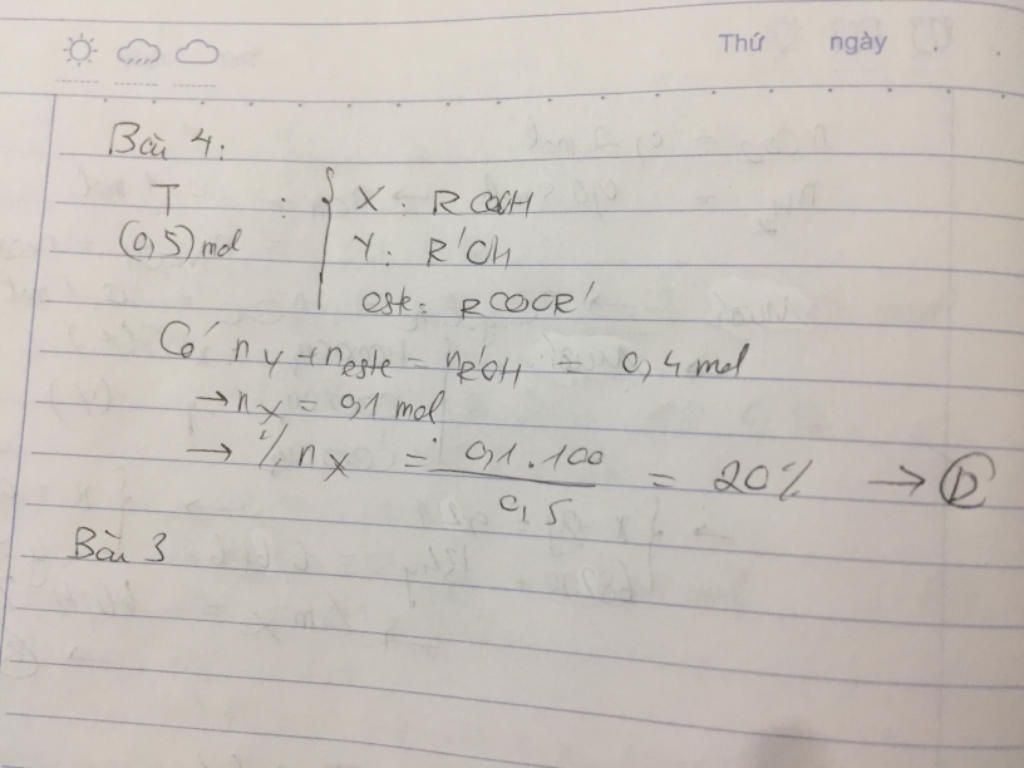 Thứ ngày
Bài 4:
T : { X : RCOOH
(0,5) mol Y : R'OH
este: RCOOR'
Có nY + neste = nR'OH = 0,4 mol
→ nX = 0,1 mol
→ % nX = 0,1 . 100 / 0,5 = 20% → D
Bài 3